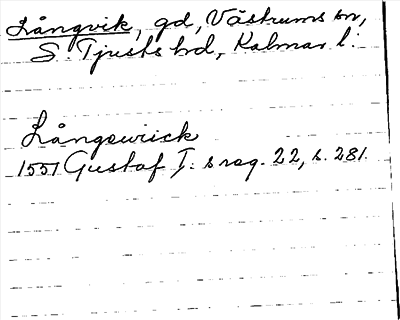 Långvik, gd, Västrums sn,
S. Tjusts hd, Kalmar l.
Långewick
1551 Gustaf I:s reg. 22, s. 281.